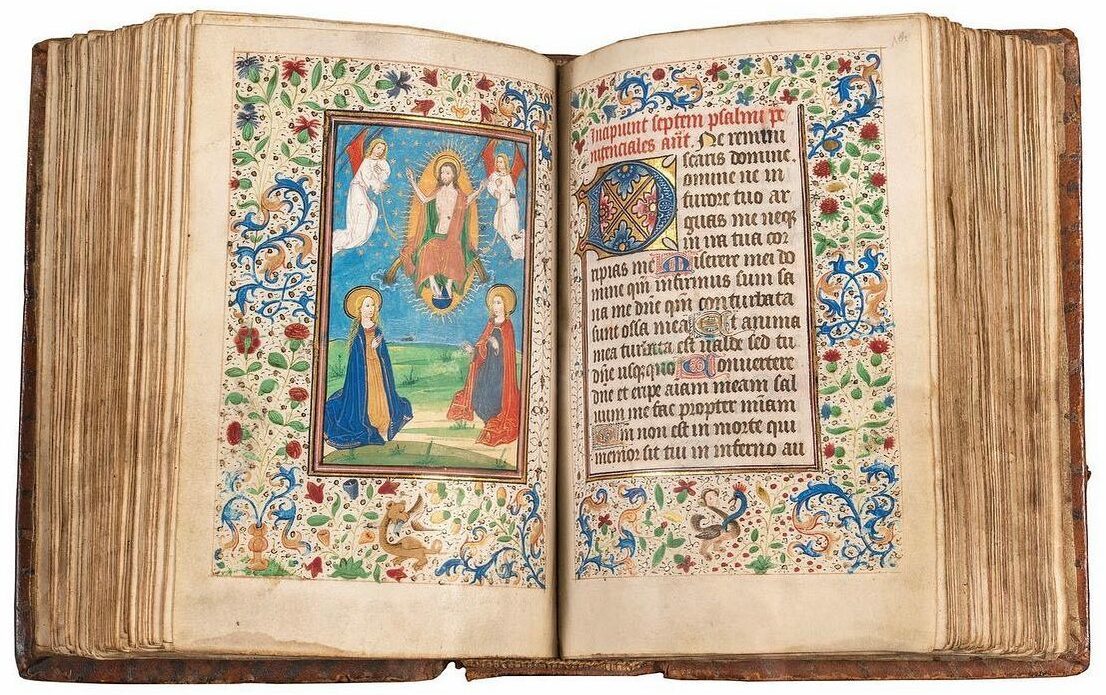 Incipiunt septem psalmi pe
nitenciales añt. Ne remini
scaris domine.
Domine ne in
furore tuo ar
guas me neqꝫ
in ira tua cor
ripias me Miserere mei do
mine qm̄ infirmus sum sa
na me dn̄e qm̄ conturbata
sunt ossa mea Et anima
mea turbata est ualde sed tu
dn̄e usquequo Conuertere
dn̄e et eripe aīam meam sal
uum me fac propter mīam
Qm̄ non est in morte qui
memor sit tui in inferno au